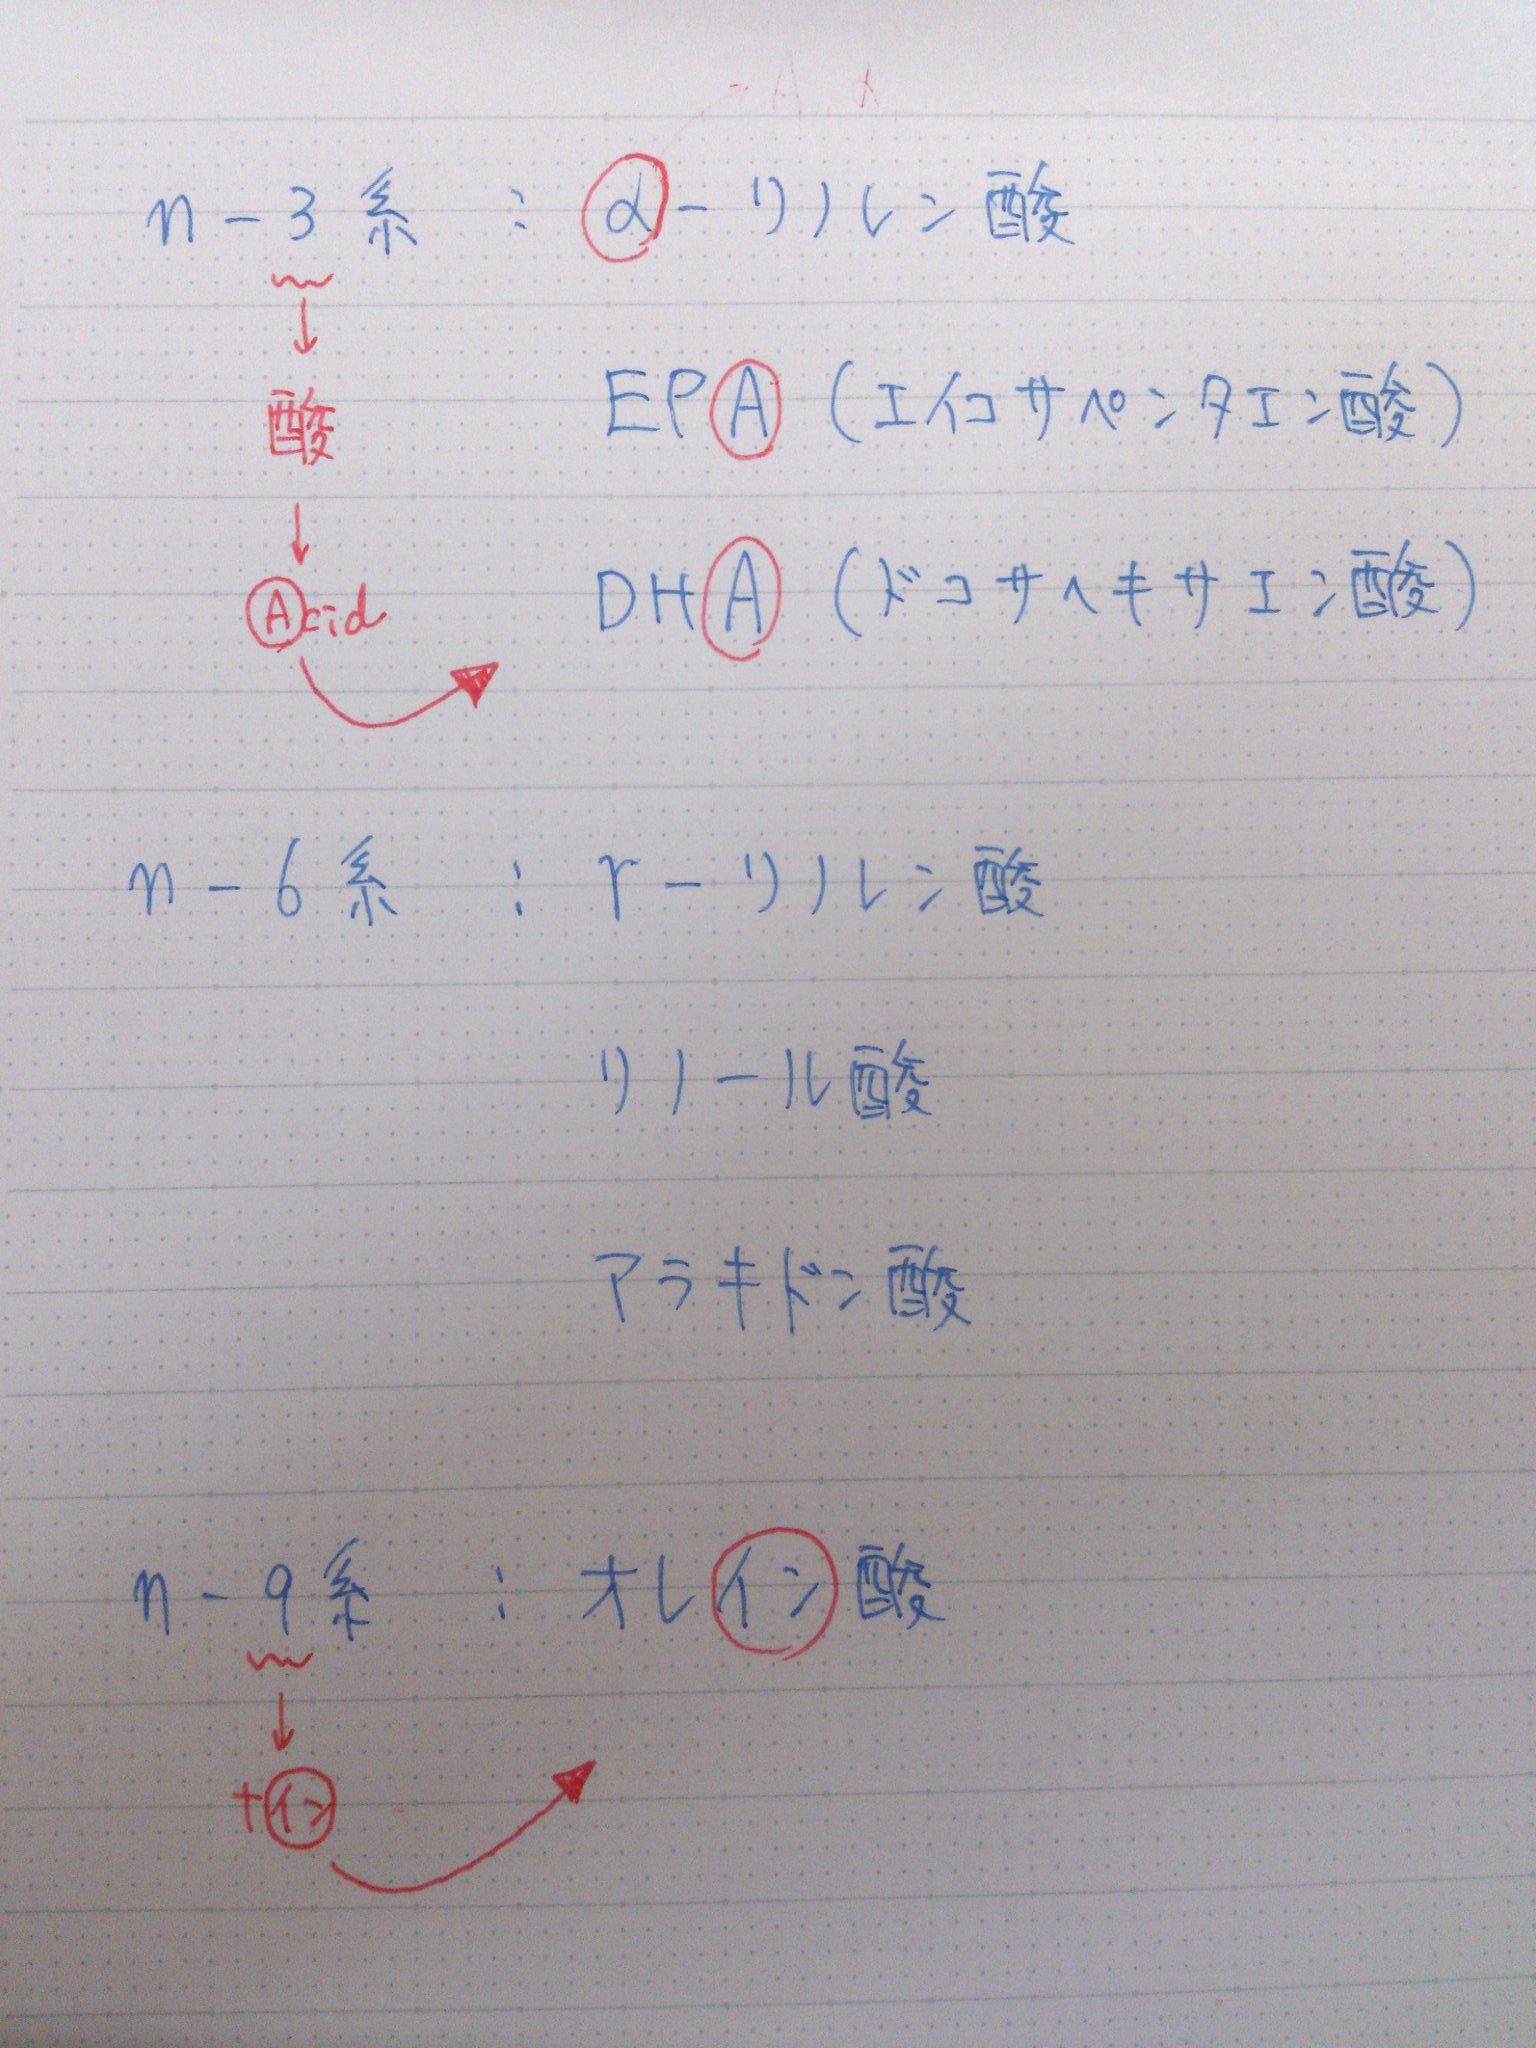 n-3系 : α-リノレン酸
酸
EPA (エイコサペンタエン酸)
Acid
DHA (ドコサヘキサエン酸)
n-6系 : γ-リノレン酸
リノール酸
アラキドン酸
n-9系 : オレイン酸
ナイン